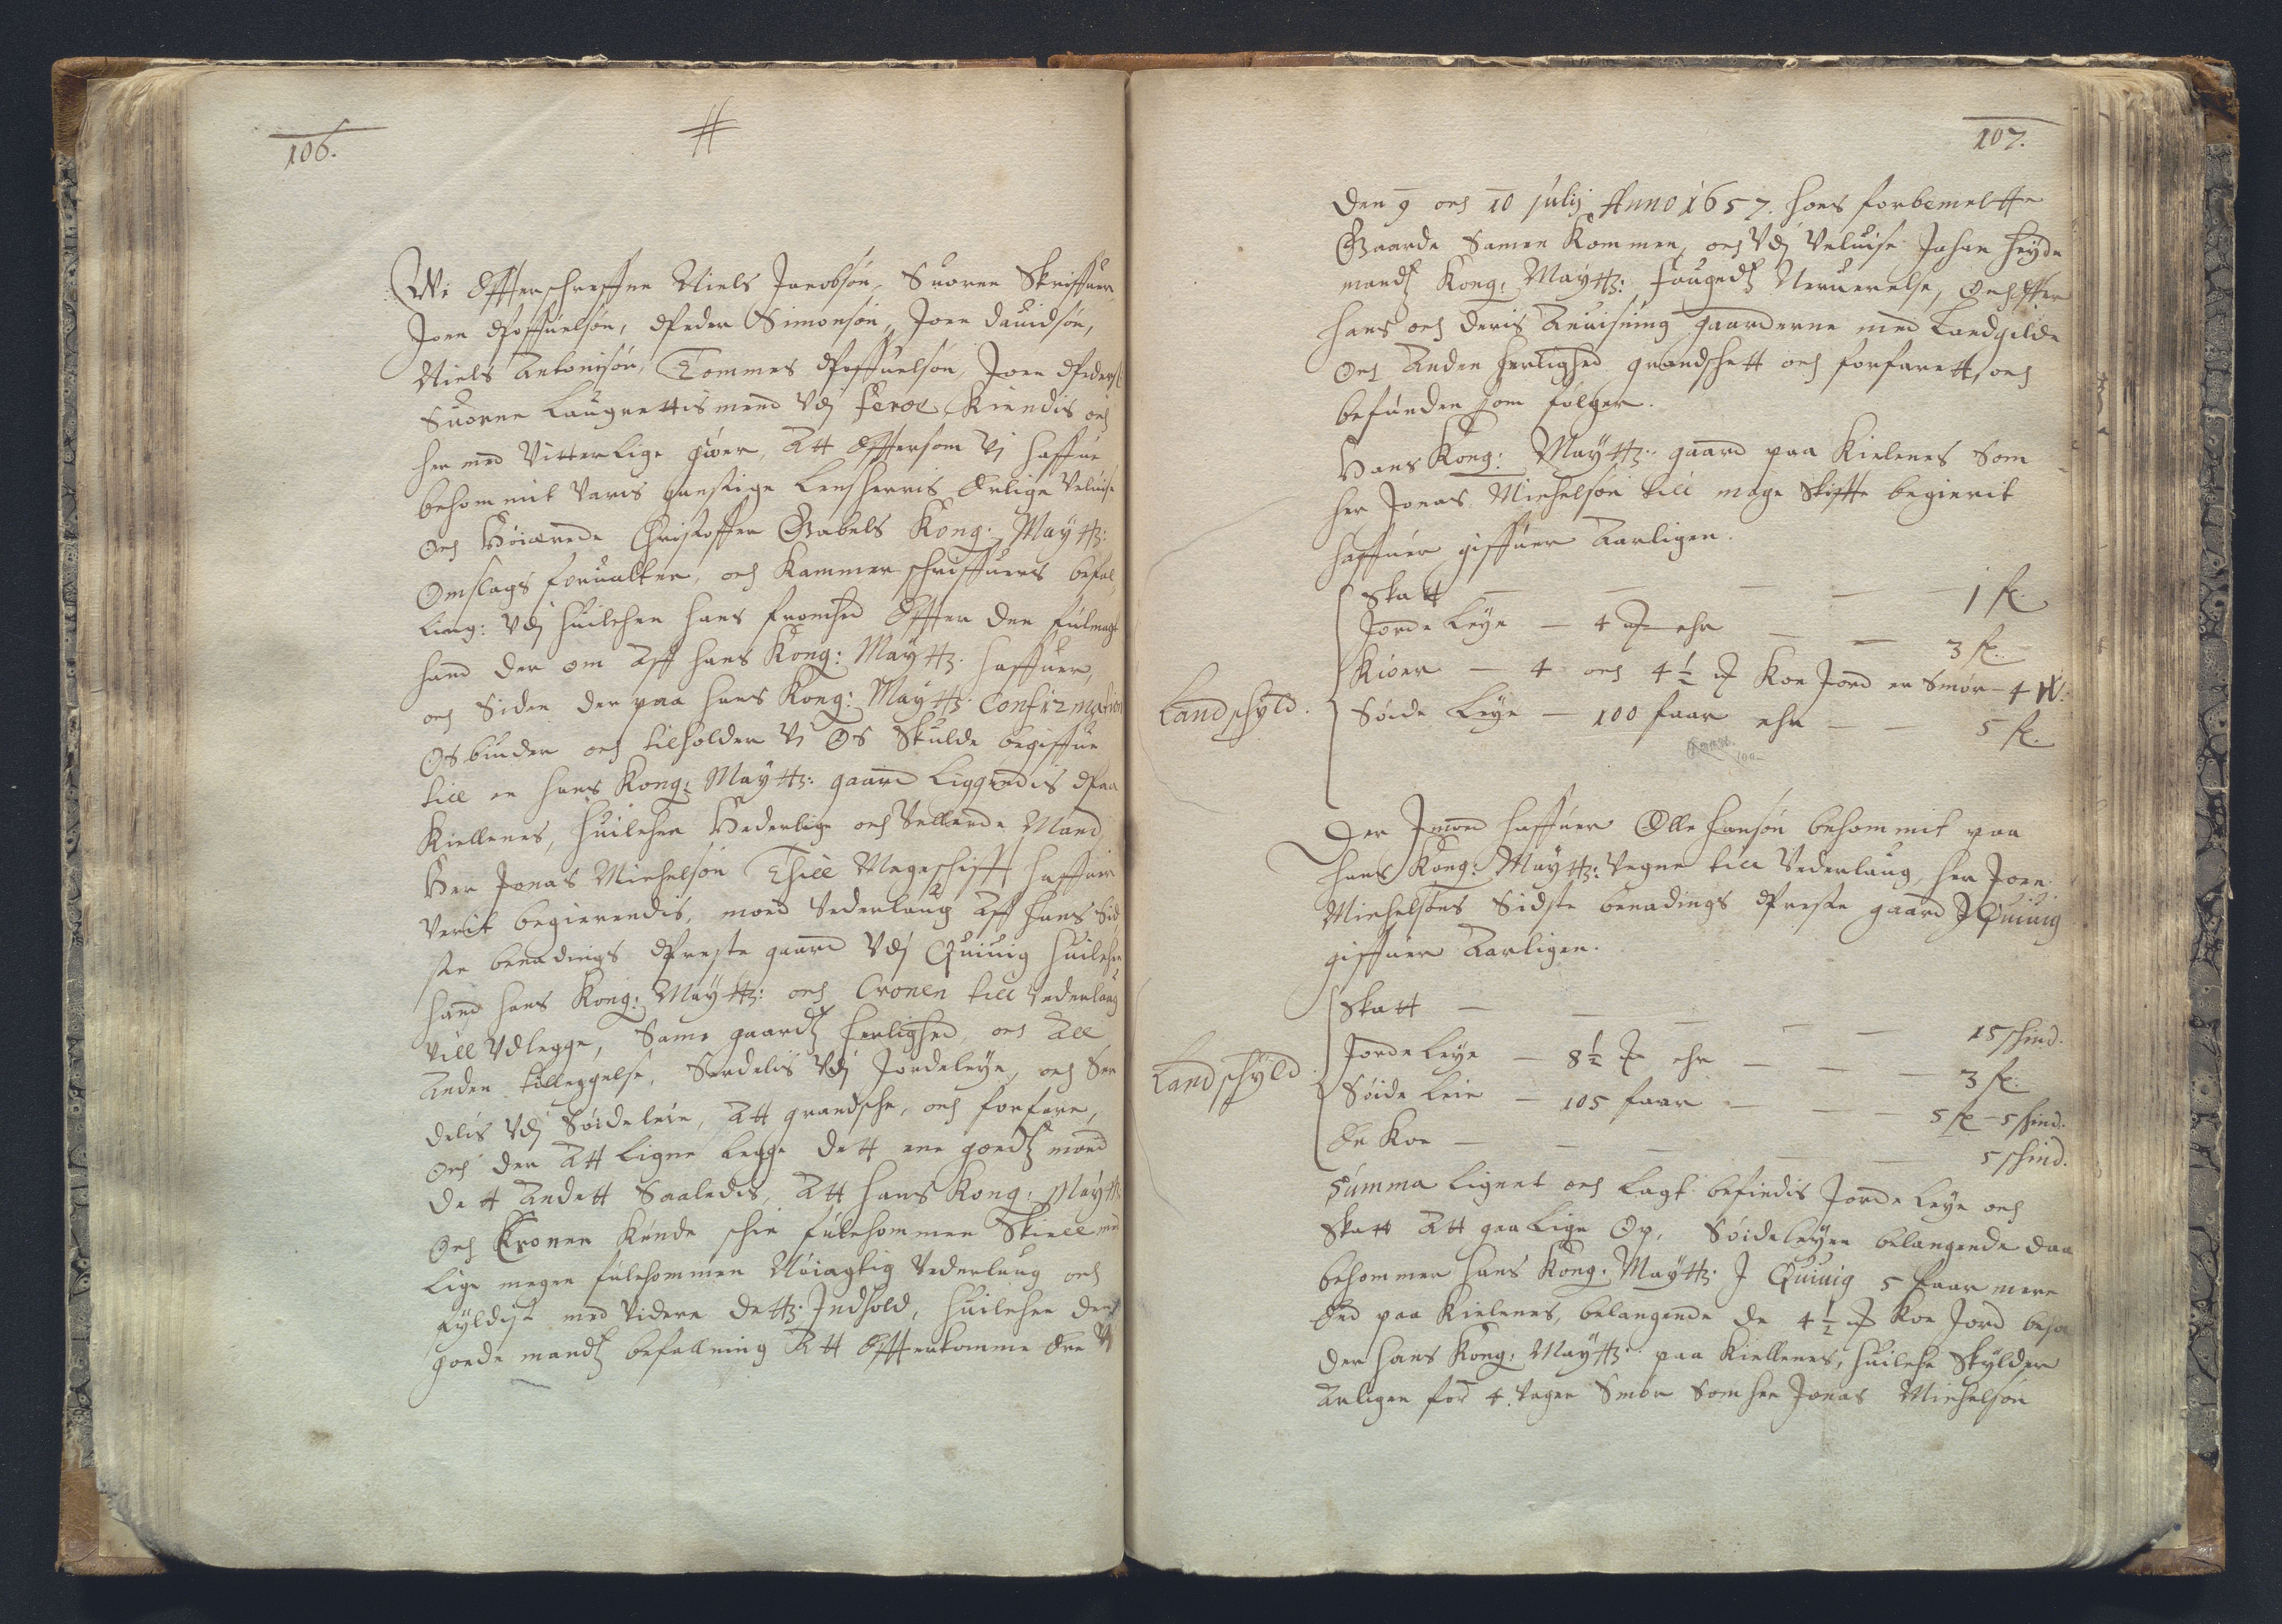 106.
Wi Effterschreffne Niels Jacobsøn, Suoren Skriffuer,
Joen Poffuelsøn, Peder Simonsøn, Joen Dauidsøn,
Niels Antonisøn, Tommes Poffuelsøn, Joen Peders:
Suorne Laugrettismend Vdj Feroe, Kiendis och
her med Vitterlige giøer, Att Effttersom Vj haffue
bekommit Voris gunstige Lensherris Erlige Veluise
Och Høiacte Christoffer Gabels Kong: Maytts:
Omslags foruallter, och Kammerschriffuers befal,
ling: Vdj huilchen hans fromhed Effter den fulmagt
hand der om Aff hans Kong: Maytts. haffuer,
och Siden der paa hans Kong: Maytts Confirmation
Os biuder och tilholder Vj Os Skulde begiffue
till en hans Kong: Maytts: gaard Liggendis Paa
Kiellenes, huilchen Hederlige och Vellerde Mand
Her Jonas Michelsøn Thill Mageschifft haffuer
Verit begierendis, moed Vederlaug Aff hans Sid
ste benadings Preste gaard Vdj Quiuig huilchen
hand hans Kong: Maytts: och Cronen till Vederlaug
Vill Vdlegge, Same gaards herlighed, och All
Anden tilleggelse, Serdelis Vdj Jordeleye, och Ser
delis Vdj Søideleie, Att grandsche, och forfare,
Och der Att ligne legge dett ene goeds moed
dett Andett Saaledis, Att hans Kong: Maytts
Och Cronen Kunde schie fulchommen Skiell med
Lige megen fulchommen Nøiagtig Vederlaug och
Fyldist med Videre detts. Indhold, huilchen den
goede mands befalling Att Effterkomme Ere Vj
107.
Den 9 och 10 Julij Anno 1657. hoes forbemeltte
Gaarde Samen Kommen, och Vdj Veluise Johan Heyde
mands Kong: Maytts: fougeds Neruerelse, Och Effter
hans och deris Anuisning gaarderne med Landgilde
Och Anden herlighed grandschett och forfarett, och
befunden som følger.
Hans Kong: Maytts. gaard paa Kielenes Som
her Jonas Michelsøn till mage Skiffte begierit
haffuer giffuer Aarligen.
Landschyld.
Skatt — 1 sk.
Jorde Leye — 4 ehr — 3 sk.
Kiøer — 4 och 4 1/2 Koe Jord er Smør — 4 W:
Søide Leye — 100 faar ehr — 5 sk.
100
Der Jmoed haffuer Olle hansøn bekommit paa
hans Kong: Maytts: Vegne till Vederlaug, her Joen.
Michelsøns Sidste benadings Preste gaard J Quiuig
giffuer Aarligen.
Landschyld
Skatt — 15 schind.
Jorde Leye — 8 1/2 ehr — 3 sk.
Søide Leie — 105 faar — 5 sk 5 schind.
En Koe — 5 schind.
Summa lignet och lagt befindis Jorde Leye och
Skatt Att gaa Lige Op, Søideleyen belangende daa
bekommer hans Kong: Maytts. J Quiuig 5 faar mere
End paa Kielenes, belangende de 4 1/2 Koe Jord beho
der hans Kong: Maytts. paa Kiellenes, huilche Skylder
Arligen for 4. Vager Smør Som her Jonas Michelsøn